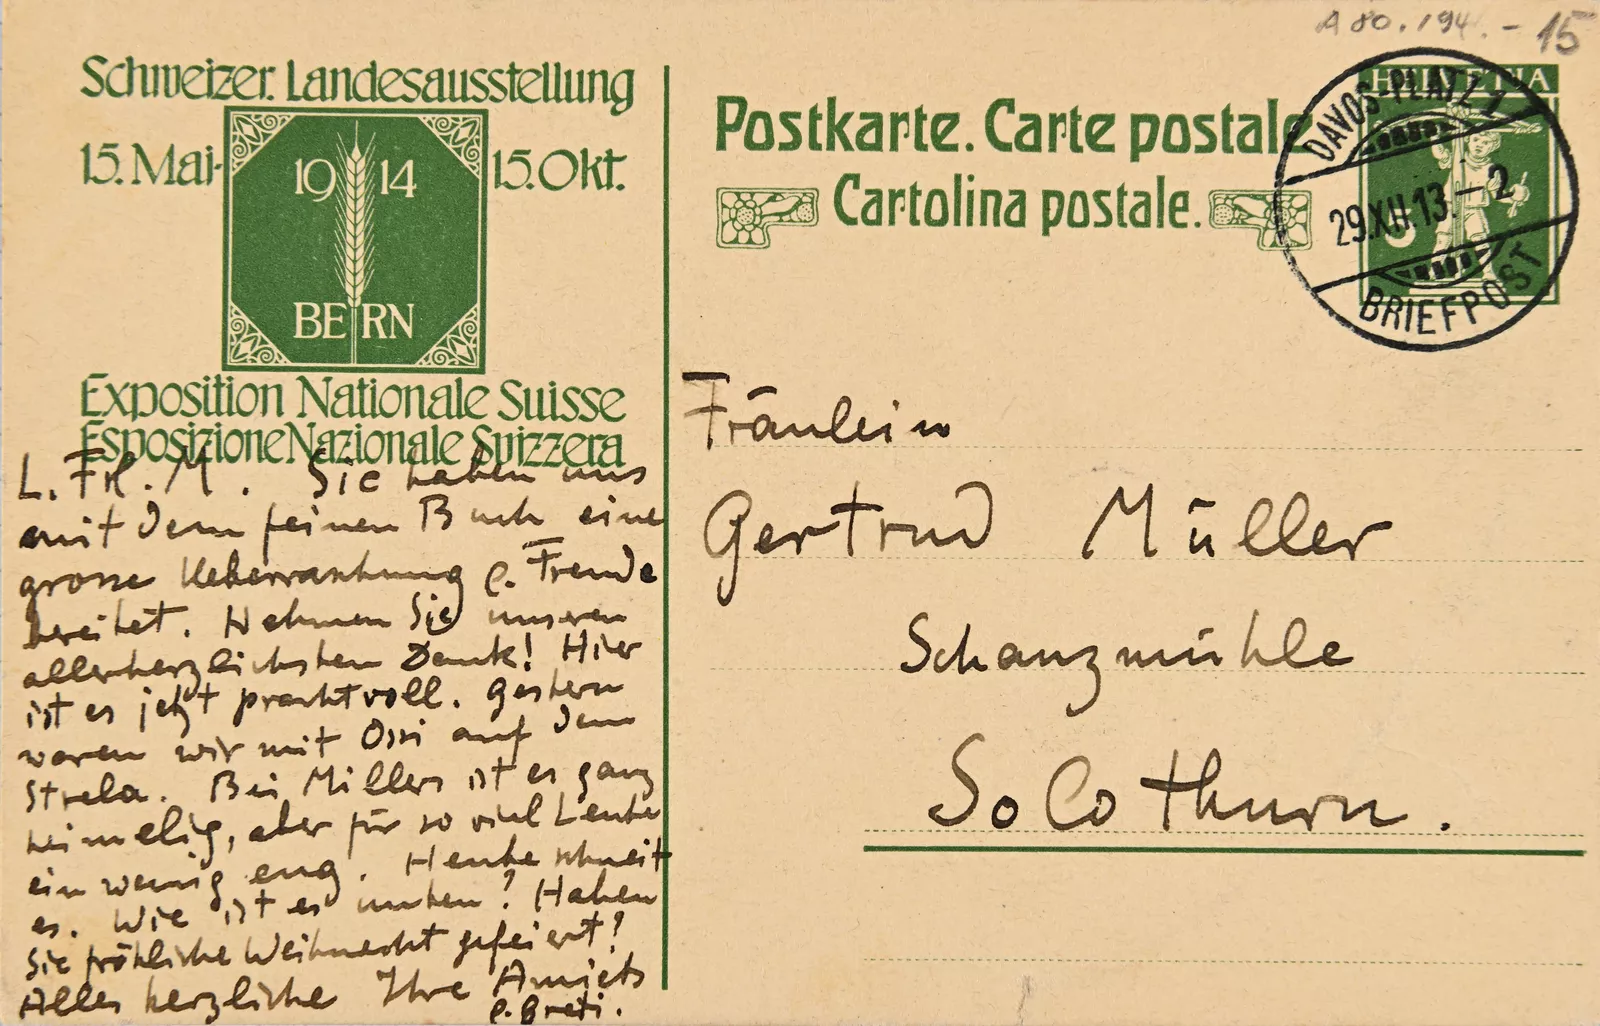 A 80.194.- 15
Schweizer. Landesausstellung
15. Mai- 15. Okt.
19 14
BERN
Exposition Nationale Suisse
Esposizione Nazionale Svizzera
Postkarte. Carte postale
Cartolina postale.
HELVETIA
DAVOS-PLATZ 1
29.XII.13.-2
BRIEFPOST
L. Frl. M. Sie haben uns
mit dem feinen Buch eine
grosse Ueberraschung e. Freude
bereitet. Nehmen Sie unseren
allerherzlichsten Dank! Hier
ist es jetzt prachtvoll. Gestern
waren wir mit Ossi auf dem
Strela. Bei Millers ist es ganz
heimelig, aber für so viel Leute
ein wenig eng. Heute schneit
es. Wie ist es unten? Haben
Sie fröhliche Weihnacht gefeiert?
Alles herzliche Ihre Amiets
e. Greti.
Fräulein
Gertrud Müller
Schanzmühle
Solothurn.